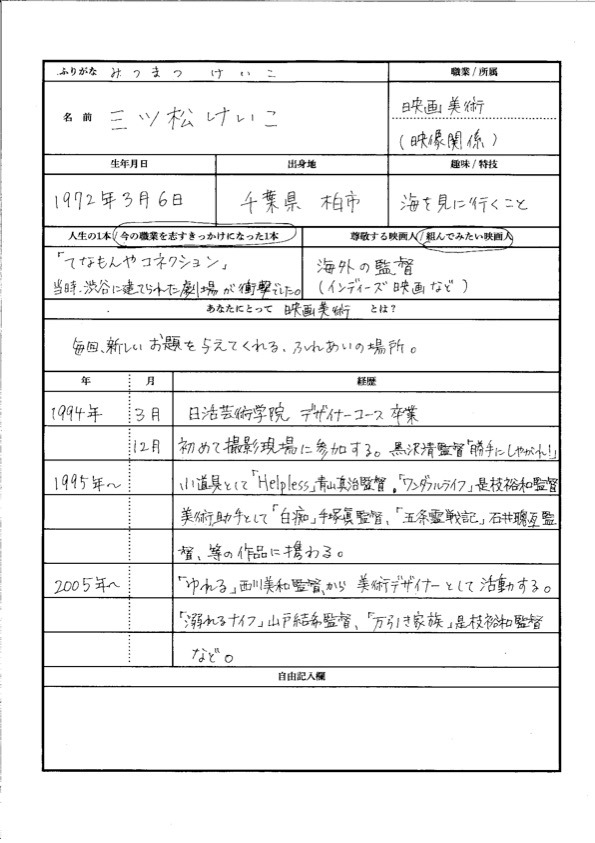 ふりがな みつまつ けいこ
職業/所属
名前 三ツ松けいこ
映画美術
(映像関係)
生年月日
出身地
趣味/特技
1972年3月6日
千葉県 柏市
海を見に行くこと
人生の1本/今の職業を志すきっかけになった1本
尊敬する映画人/組んでみたい映画人
「てなもんやコネクション」
当時、渋谷に建てられた劇場が衝撃でした。
海外の監督
(インディーズ映画など)
あなたにとって 映画美術 とは?
毎回、新しいお題を与えてくれる、ふれあいの場所。
年 月 経歴
1994年 3月 日活芸術学院 デザイナーコース 卒業
12月 初めて撮影現場に参加する。黒沢清監督「勝手にしやがれ!」
1995年〜 小道具として「Helpless」青山真治監督。「ワンダフルライフ」是枝裕和監督
美術助手として「白痴」手塚眞監督、「五条霊戦記」石井聰亙監
督、等の作品に携わる。
2005年〜 「ゆれる」西川美和監督、から 美術デザイナーとして活動する。
「溺れるナイフ」山戸結希監督、「万引き家族」是枝裕和監督
など。
自由記入欄